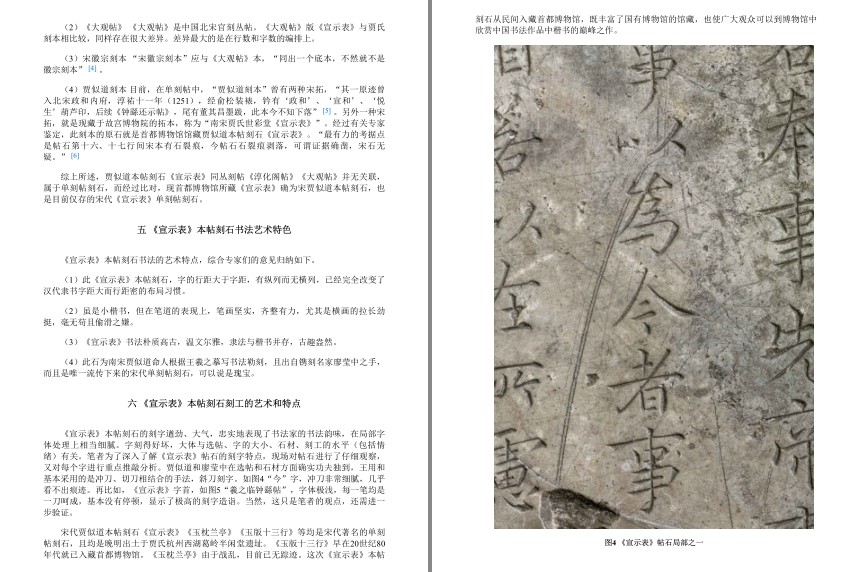 （2）《大观帖》 《大观帖》是中国北宋官刻丛帖，《大观帖》版《宣示表》与贾氏
刻本相比较，同样存在很大差异。差异最大的是在行数和字数的编排上。
（3）宋徽宗刻本 “宋徽宗刻本”应与《大观帖》本，“同出一个底本，不然就不是
徽宗刻本” [4] 。
（4）贾似道刻本 目前，在单刻帖中，“贾似道刻本”曾有两种宋拓，“其一原迹曾
入北宋政和内府，淳祐十一年（1251），经俞松装裱，钤有‘政和’、‘宣和’、‘悦
生’胡芦印，后续《钟繇还示帖》，尾有董其昌墨跋，此本今不知下落” [5] 。另外一种宋
拓，就是现藏于故宫博物院的拓本，称为“南宋贾氏世彩堂《宣示表》”。经过有关专家
鉴定，此刻本的原石就是首都博物馆馆藏贾似道本帖刻石《宣示表》。“最有力的考据点
是帖石第十六、十七行间宋本有石裂痕，今帖石石裂痕剥落，可谓证据确凿，宋石无
疑。” [6]
综上所述，贾似道本帖刻石《宣示表》同丛刻帖《淳化阁帖》《大观帖》并无关联，
属于单刻帖刻石，而经过比对，现首都博物馆所藏《宣示表》确为宋贾似道本帖刻石，也
是目前仅存的宋代《宣示表》单刻帖刻石。
五 《宣示表》本帖刻石书法艺术特色
《宣示表》本帖刻石书法的艺术特点，综合专家们的意见归纳如下。
（1）此《宣示表》本帖刻石，字的行距大于字距，有纵列而无横列，已经完全改变了
汉代隶书字距大而行距密的布局习惯。
（2）虽是小楷书，但在笔道的表现上，笔画坚实，齐整有力，尤其是横画的拉长劲
挺，毫无苟且偷滑之嫌。
（3）《宣示表》书法朴质高古，温文尔雅，隶法与楷书并存，古趣盎然。
（4）此石为南宋贾似道命人根据王羲之摹写书法勒刻，且出自镌刻名家廖莹中之手，
而且是唯一流传下来的宋代单刻帖刻石，可以说是瑰宝。
六 《宣示表》本帖刻石刻工的艺术和特点
《宣示表》本帖刻石的刻字遒劲、大气，忠实地表现了书法家的书法韵味，在局部字
体处理上相当细腻。字刻得好坏，大体与选帖、字的大小、石材、刻工的水平（包括情
绪）有关。笔者为了深入了解《宣示表》帖石的刻字特点，现场对帖石进行了仔细观察，
又对每个字进行重点推敲分析。贾似道和廖莹中在选帖和石材方面确实功夫独到。王用和
基本采用的是冲刀、切刀相结合的手法，斜刀刻字。如图4“今”字，冲刀非常细腻，几乎
看不出痕迹。再比如，《宣示表》字首，如图5“羲之临钟繇帖”，字体极浅，每一笔均是
一刀呵成，基本没有停顿，显示了极高的刻字造诣。当然，这只是笔者的观点，还需进一
步验证。
宋代贾似道本帖刻石《宣示表》《玉枕兰亭》《玉版十三行》等均是宋代著名的单刻
帖刻石，且均是晚明出土于贾氏杭州西湖葛岭半闲堂遗址。《玉版十三行》早在20世纪80
年代就已入藏首都博物馆。《玉枕兰亭》由于战乱，目前已无踪迹。这次《宣示表》本帖
刻石从民间入藏首都博物馆，既丰富了国有博物馆的馆藏，也使广大观众可以到博物馆中
欣赏中国书法作品中楷书的巅峰之作。
事以为今者事
图4 《宣示表》帖石局部之一